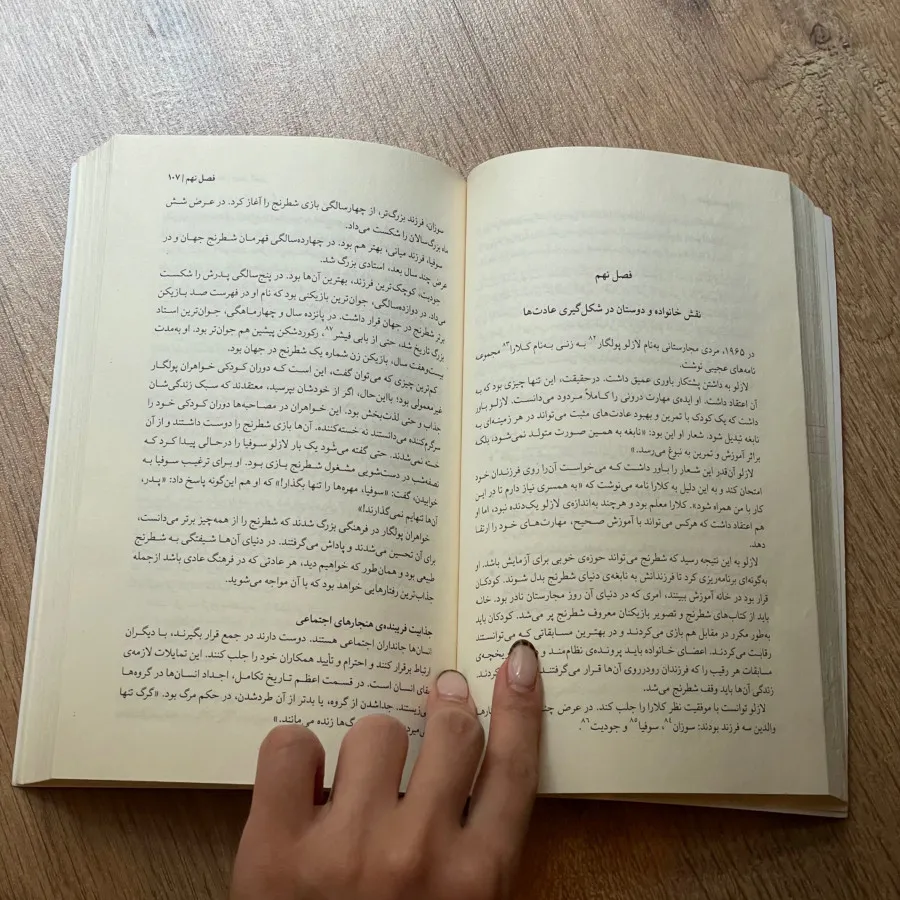 فصل نهم
نقش خانواده و دوستان در شکل‌گیری عادت‌ها
در ۱۹۶۵، مردی مجارستانی به‌نام لازلو پولگار۸۲ به زنی به‌نام کلارا۸۳ مجموعه
نامه‌های عجیبی نوشت.
لازلو به داشتن پشتکار باوری عمیق داشت. درحقیقت، این تنها چیزی بود که به
آن اعتقاد داشت. او ایده‌ی مهارت درونی را کاملاً مردود می‌دانست. لازلو باور
داشت که یک کودک با تمرین و بهبود عادت‌های مثبت می‌تواند در هر زمینه‌ای به
نابغه تبدیل شود. شعار او این بود: «نابغه به همین صورت متولد نمی‌شود، بلکه
براثر آموزش و تمرین به نبوغ می‌رسد.»
لازلو آن‌قدر این شعار را باور داشت که می‌خواست آن‌را روی فرزندان خود
امتحان کند و به این دلیل به کلارا نامه می‌نوشت که «به همسری نیاز دارم تا در این
کار با من همراه شود». کلارا معلم بود و هرچند به‌اندازه‌ی لازلو یک‌دنده نبود، اما او
هم اعتقاد داشت که هرکس می‌تواند با آموزش صحیح، مهارت‌های خود را ارتقا
دهد.
لازلو به این نتیجه رسید که شطرنج می‌تواند حوزه‌ی خوبی برای آزمایش باشد. او
به‌گونه‌ای برنامه‌ریزی کرد تا فرزندانش به نابغه‌ی دنیای شطرنج بدل شوند. کودکان
قرار بود در خانه آموزش ببینند، امری که در دنیای آن روز مجارستان نادر بود. خانه
باید از کتاب‌های شطرنج و تصویر بازیکنان معروف شطرنج پر می‌شد. کودکان باید
به‌طور مکرر در مقابل هم بازی می‌کردند و در بهترین مسابقاتی که می‌توانستند
رقابت می‌کردند. اعضای خانواده باید پرونده‌ی نظام‌مند و
مسابقات هر رقیب را که فرزندان رودرروی آن‌ها قرار می‌گرفتند
زندگی آن‌ها باید وقف شطرنج می‌شد.
لازلو توانست با موفقیت نظر کلارا را جلب کند. در عرض
والدین سه فرزند بودند: سوزان۸۴، سوفیا۸۵ و جودیت۸۶.
فصل نهم | ۱۰۷
سوزان، فرزند بزرگ‌تر، از چهارسالگی بازی شطرنج را آغاز کرد. در عرض شش
ماه بزرگ‌سالان را شکست می‌داد.
سوفیا، فرزند میانی، بهتر هم بود. در چهارده‌سالگی قهرمان شطرنج جهان و در
عرض چند سال بعد، استادی بزرگ شد.
جودیت، کوچک‌ترین فرزند، بهترین آن‌ها بود. در پنج‌سالگی پدرش را شکست
می‌داد. در دوازده‌سالگی، جوان‌ترین بازیکنی بود که نام او در فهرست صد بازیکن
برتر شطرنج در جهان قرار داشت. در پانزده سال و چهارماهگی، جوان‌ترین استاد
بزرگ تاریخ شد، حتی از بابی فیشر۸۷، رکوردشکن پیشین هم جوان‌تر بود. او به‌مدت
بیست‌وهفت سال، بازیکن زن شماره یک شطرنج در جهان بود.
کم‌ترین چیزی که می‌توان گفت، این است که دوران کودکی خواهران پولگار
غیرمعمولی بود؛ بااین‌حال، اگر از خودشان بپرسید، معتقدند که سبک زندگی‌شان
جذاب و حتی لذت‌بخش بود. این خواهران در مصاحبه‌ها دوران کودکی خود را
سرگرم‌کننده می‌دانستند نه خسته‌کننده. آن‌ها بازی شطرنج را دوست داشتند و از آن
خسته نمی‌شدند. حتی گفته می‌شود یک بار لازلو سوفیا را درحالی پیدا کرد که
نصفه‌شب در دست‌شویی مشغول شطرنج بازی بود. او برای ترغیب سوفیا به
خوابیدن، گفت: «سوفیا، مهره‌ها را تنها بگذار!» که او هم این‌گونه پاسخ داد: «پدر،
آن‌ها تنهایم نمی‌گذارند!»
خواهران پولگار در فرهنگی بزرگ شدند که شطرنج را از همه‌چیز برتر می‌دانست،
برای آن تحسین می‌شدند و پاداش می‌گرفتند. در دنیای آن‌ها شیفتگی به شطرنج
طبیعی بود و همان‌طور که خواهیم دید، هر عادتی که در فرهنگ عادی باشد ازجمله
جذاب‌ترین رفتارهایی خواهد بود که با آن مواجه می‌شوید.
جذابیت فریبنده‌ی هنجارهای اجتماعی
انسان‌ها جاندارانی اجتماعی هستند. دوست دارند در جمع قرار بگیرند، با دیگران
ارتباط برقرار کنند و احترام و تأیید همکاران خود را جلب کنند. این تمایلات لازمه‌ی
بقای انسان است. در قسمت اعظم تاریخ تکامل، اجداد انسان‌ها در گروه‌ها
می‌زیستند. جداشدن از گروه، یا بدتر از آن طردشدن، در حکم مرگ بود. «گرگ تنها
گ‌ها زنده می‌مانند.»